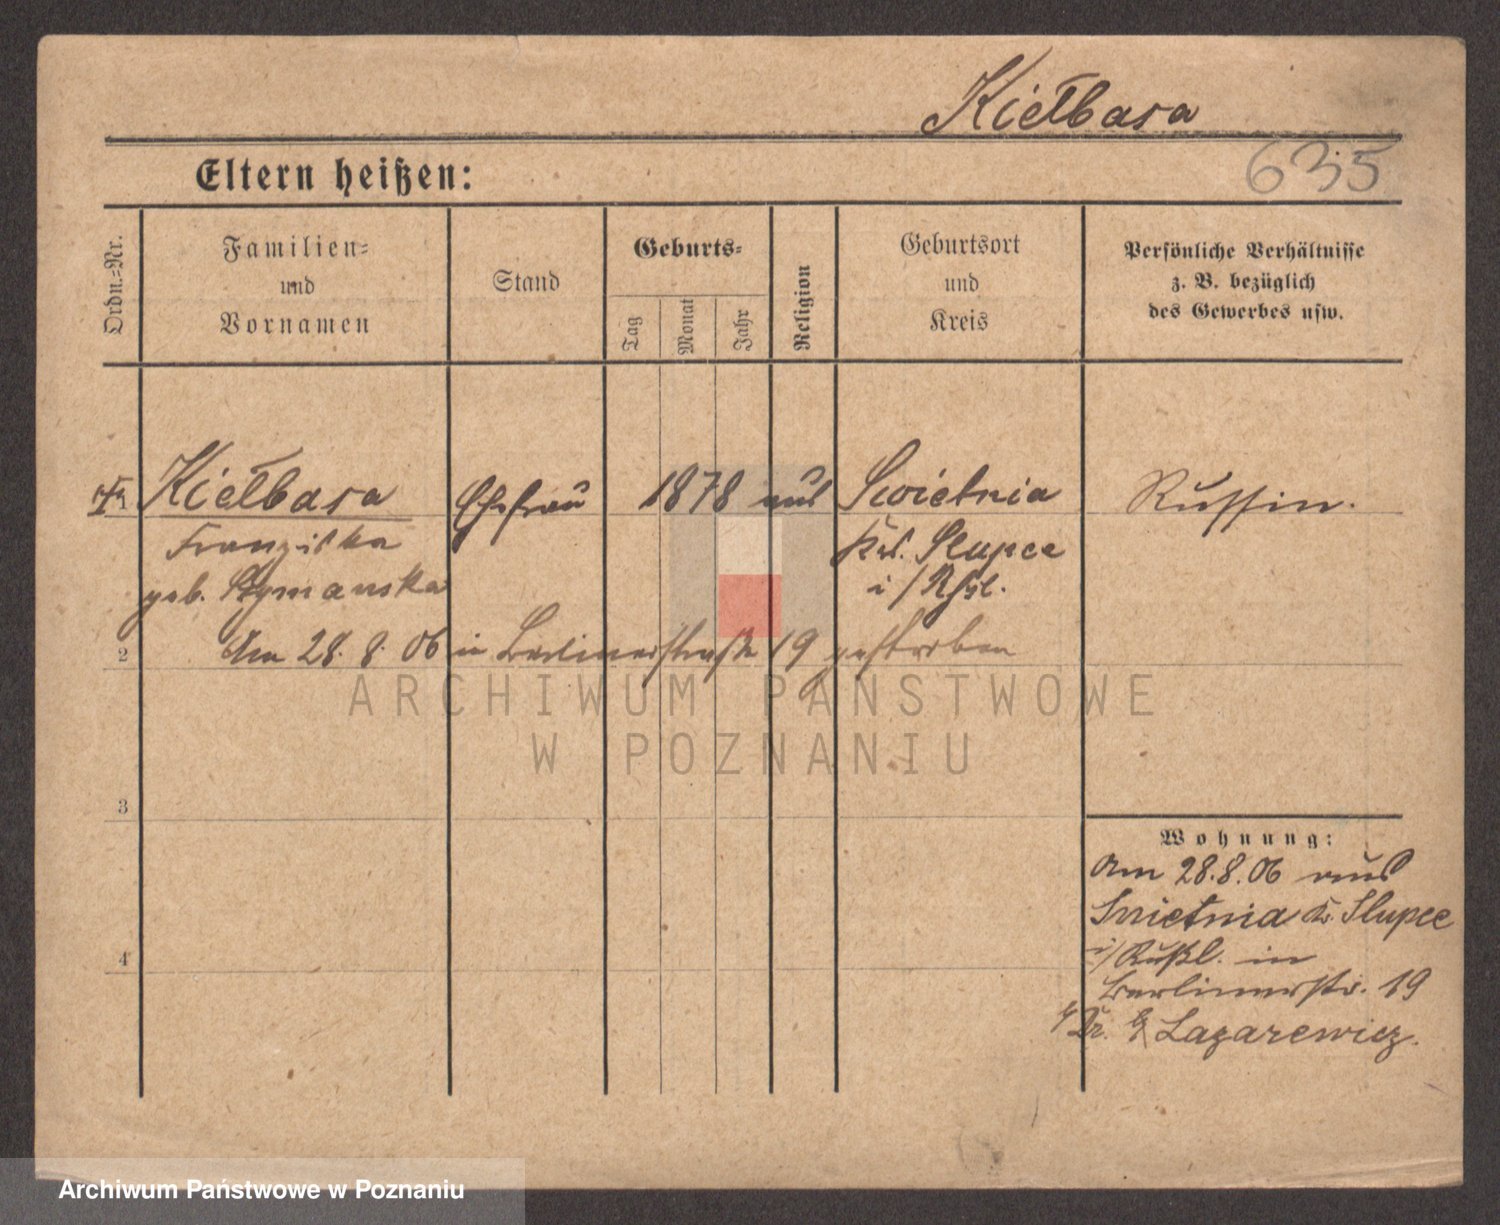 Kiełbasa
635
Eltern heißen:
Ordn.=Nr.
Familien=
und
Vornamen
Stand
Geburts=
Tag
Monat
Jahr
Religion
Geburtsort
und
Kreis
Persönliche Verhältnisse
z. B. bezüglich
des Gewerbes usw.
Kiełbasa Ehefrau 1878 aus Swietnia Russin.
Franziska Krs. Slupce
geb. i/Rßl.
2 Am 28. 8. 06 in Berlinerstraße 19 gestorben
ARCHIWUM PAŃSTWOWE
W POZNANIU
3
Wohnung:
Am 28.8.06 aus
Swietnia Kr. Slupce
i/Rußl. in
4
Berlinerstr. 19
Dr. Lazarewicz.
Archiwum Państwowe w Poznaniu